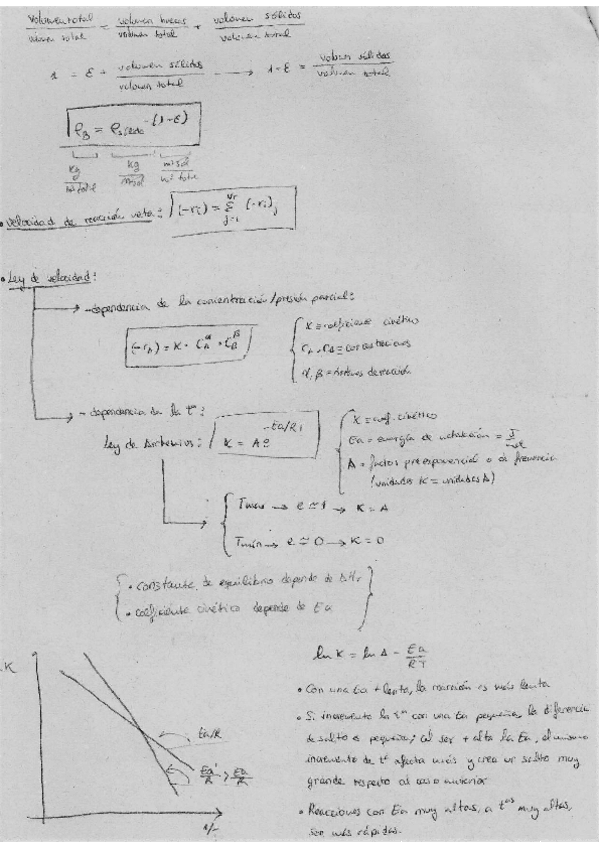 Volumen total / volumen total = volumen huecos / volumen total + volumen sólidos / volumen total
1 = ε + volumen sólidos / volumen total → 1-ε = volumen sólidos / volumen total
ρ_B = ρ_sólido · (1-ε)
kg / m³ total   kg / m³ sol   m³ sol / m³ total
• Velocidad de reacción neta: (-r_i) = Σ (-r_i)_j
j=1
• Ley de velocidad:
→ -dependencia de la concentración/presión parcial:
(-r_A) = K · C_A^α · C_B^β
K ≡ coeficiente cinético
C_A, C_B ≡ concentraciones
α, β = órdenes de reacción
→ -dependencia de la tª:
Ley de Arrhenius: K = A e^-Ea/RT
K = coef. cinético
Ea = energía de activación = J/mol
A = factor preexponencial o de frecuencia
(unidades K = unidades A)
Tmax → e ≃ 1 → K = A
Tmín → e ≃ 0 → K = 0
• constante de equilibrio depende de ΔHr
• coeficiente cinético depende de Ea
ln K = ln A - Ea/RT
• Con una Ea + lenta, la reacción es más lenta
• Si incremento la tª con una Ea pequeña, la diferencia
de salto es pequeña; al ser + alta la Ea, el mismo
incremento de tª afecta más y crea un salto muy
grande respecto al caso anterior
• Reacciones con Ea muy altas, a tªs muy altas,
son más rápidas.
K
Ea/R
Ea'/R > Ea/R
1/T